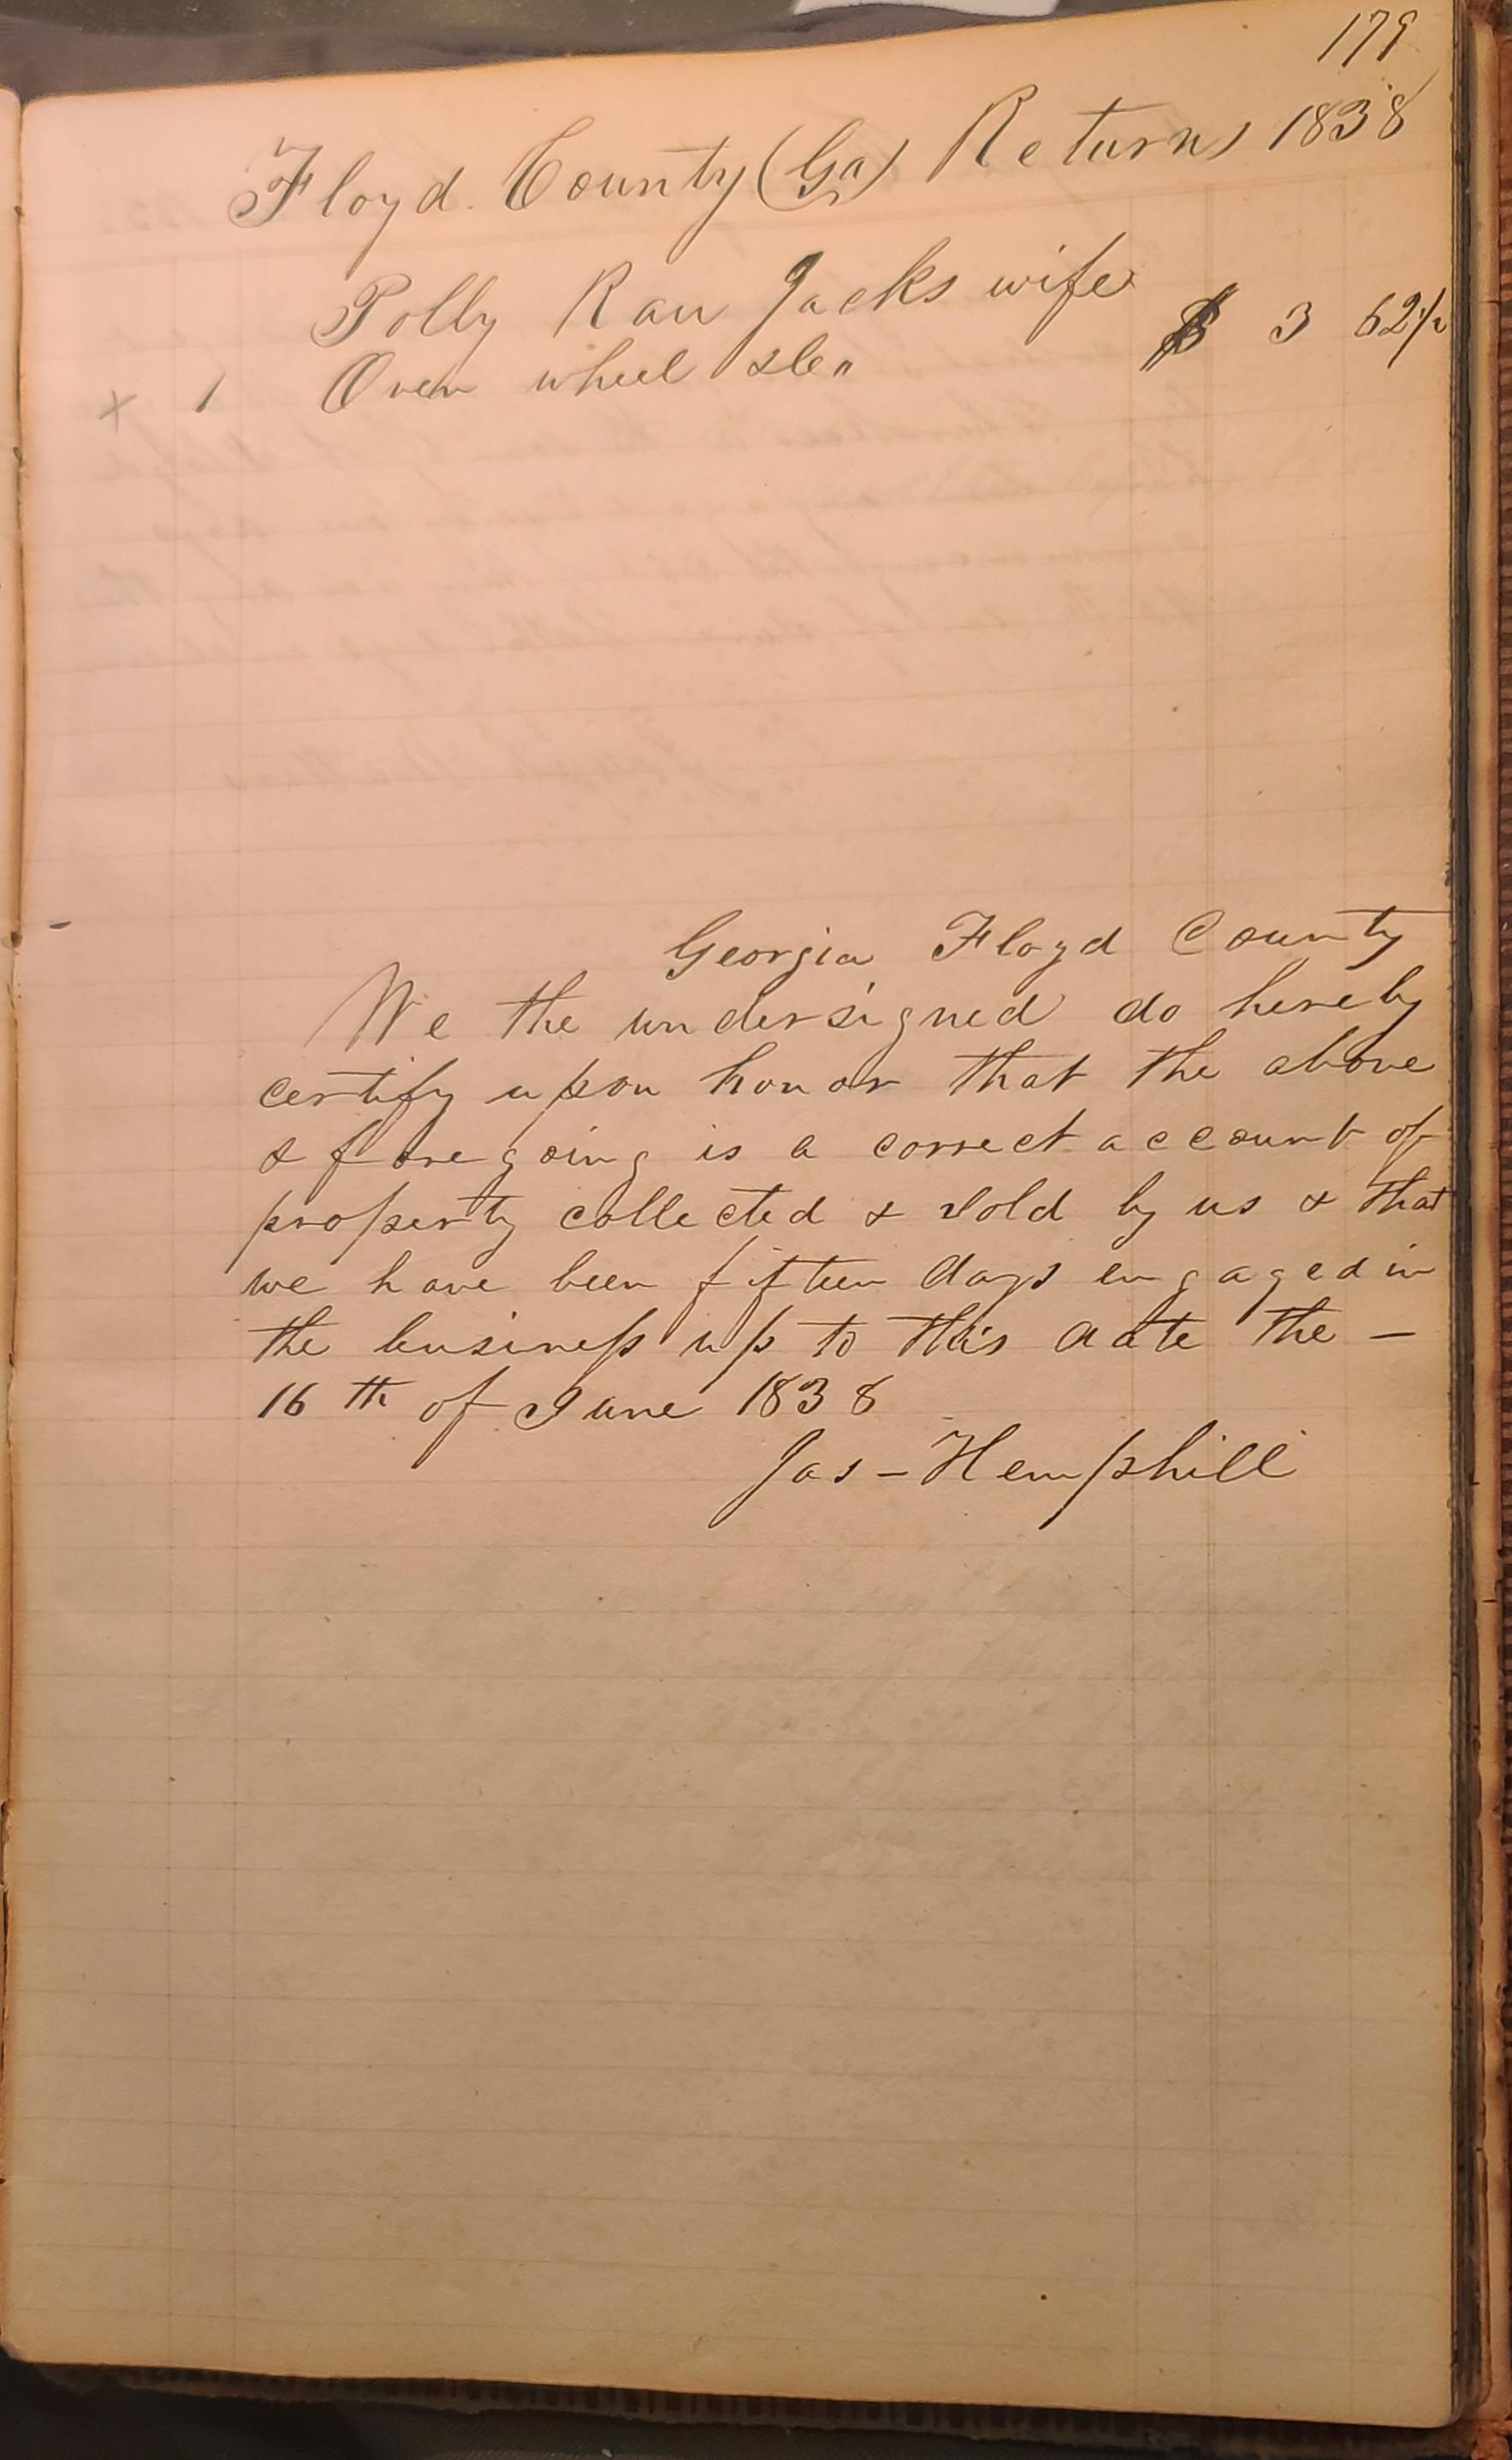 179
Floyd County (Ga) Returns 1838
Polly Rau Jacks wife
x 1 Oven wheel &c " $ 3 62 1/2
Georgia Floyd County
We the undersigned do hereby
certify upon honor that the above
& foregoing is a correct account of
property collected & sold by us & that
we have been fifteen days engaged in
the business up to this date the —
16th of June 1838
Jas - Hemphill